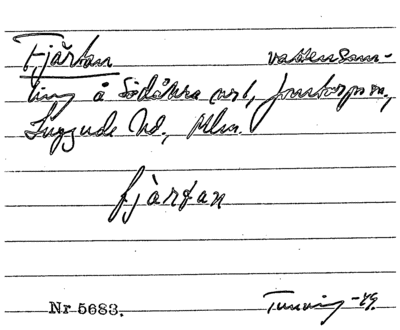 Fjärtan vattensam-
ling å Södåkra nr 1, Jonstorps sn,
Luggude hd., Mlm.
fjàrtan
Nr 5683. Tuneving -49.